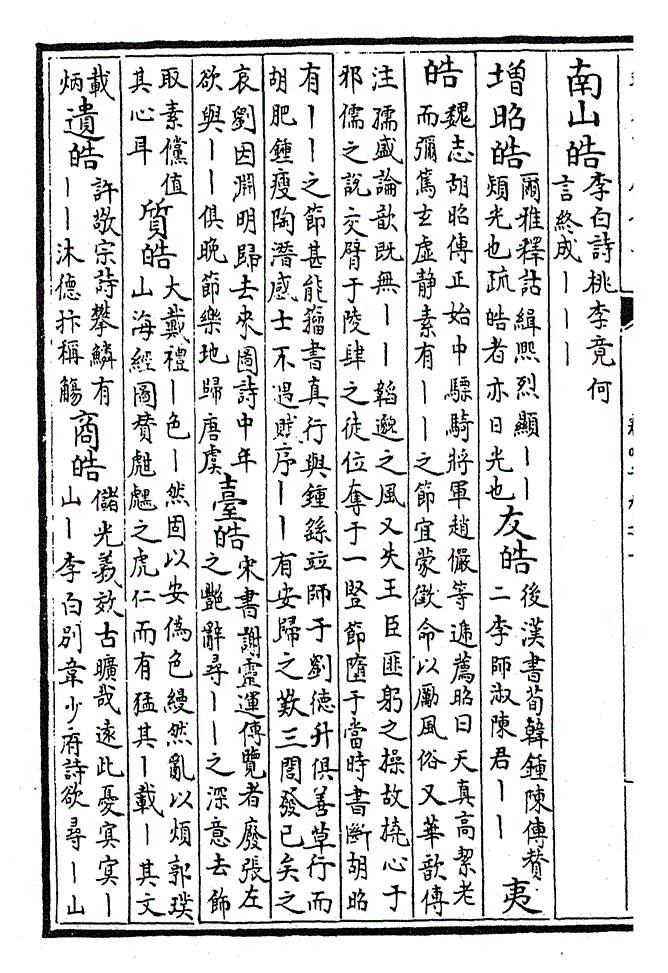 南山皓
李白詩桃李竟何
言終成｜｜｜
增昭皓
爾雅釋詁緝熙烈顯｜｜
熲光也疏皓者亦日光也
友皓
後漢書荀韓鍾陳傳贊
二李師淑陳君｜｜
夷
皓
魏志胡昭傳正始中驃騎將軍趙儼等遞薦昭曰天真高絜老
而彌篤玄虛靜素有｜｜之節宜蒙徵命以勵風俗又華歆傳
注孫盛論歆既無｜｜韜邈之風又失王臣匪躬之操故撓心于
邪儒之說交臂于陵肆之徒位奪于一豎節墮于當時書斷胡昭
有｜｜之節甚能籀書真行與鍾繇竝師于劉德升俱善草行而
胡肥鍾瘦陶潛感士不遇賦序｜｜有安歸之歎三閭發已矣之
哀劉因淵明歸去來圖詩中年
欲與｜｜俱晚節樂地歸唐虞
臺皓
宋書謝靈運傳覽者廢張左
之艷辭尋｜｜之深意去飾
取素儻值
其心耳
質皓
大戴禮｜色｜然固以安偽色縵然亂以煩郭璞
山海經圖贊之虎仁而有猛其｜載｜其文
載
炳
遺皓
許敬宗詩攀鱗有
｜｜沐德抃稱觴
商皓
儲光羲效古曠哉遠此憂冥冥｜
山｜李白別韋少府詩欲尋｜山